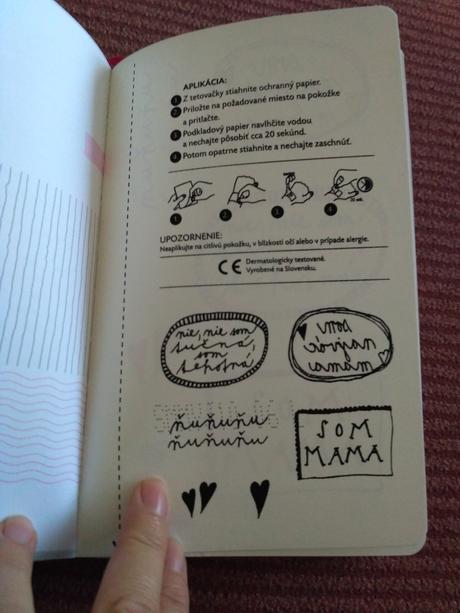 APLIKÁCIA:
1 Z tetovačky stiahnite ochranný papier.
2 Priložte na požadované miesto na pokožke
a pritlačte.
3 Podkladový papier navlhčite vodou
a nechajte pôsobiť cca 20 sekúnd.
4 Potom opatrne stiahnite a nechajte zaschnúť.
1 2 3 4
UPOZORNENIE:
Neaplikujte na citlivú pokožku, v blízkosti očí alebo v prípade alergie.
CE Dermatologicky testované.
Vyrobené na Slovensku.
nie, nie som
tučná,
som
tehotná
ňuňuňu
ňuňuňu
SOM
MAMA